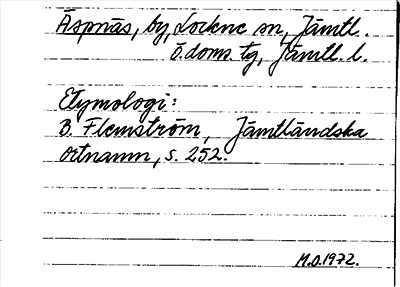 Äspnäs, by, Lockne sn, Jämtl.
ö. doms. tg, Jämtl. l.
Etymologi:
B. Flemström, Jämtländska
ortnamn, s. 252.
M.O. 1972.